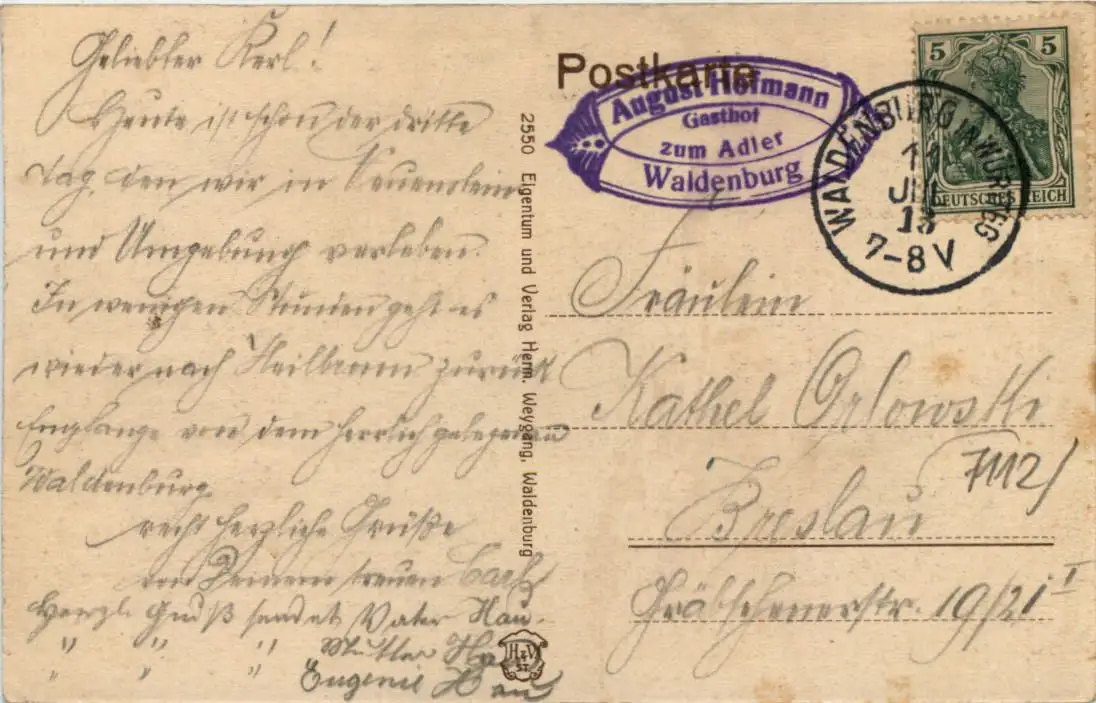 Geliebter Kerl!
Heute ist schon der dritte
Tag den wir in Neuenstein
und Umgebung verleben.
In wenigen Stunden geht es
wieder nach Heilbronn zurück
Empfange von dem herrlich gelegenen
Waldenburg
recht herzliche Grüße
von Deinem treuen Carl
Herzl. Gruß sendet Vater Hau.
" " " Mutter
" " " Eugenie Hau
2550 Eigentum und Verlag Herm. Weygang, Waldenburg
HW
Postkarte
August Hofmann
Gasthof
zum Adler
Waldenburg
5 5
DEUTSCHES REICH
WALDENBURG
13
7-8V
Fräulein
Kathel Orlowski
Breslau
Gräbschenerstr. 19/21 I